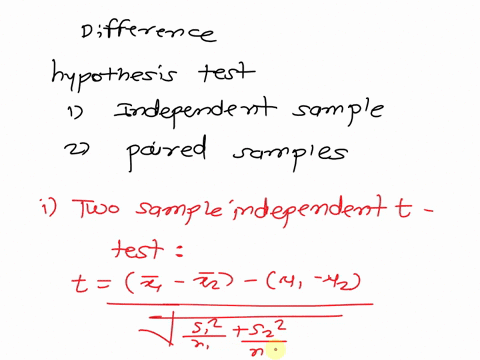 Difference
hypothesis test
1) Independent sample
2) paired samples
i) Two sample independent t -
test :
t = (x̄₁ - x̄₂) - (μ₁ - μ₂)
√ s₁²/n₁ + s₂²/n